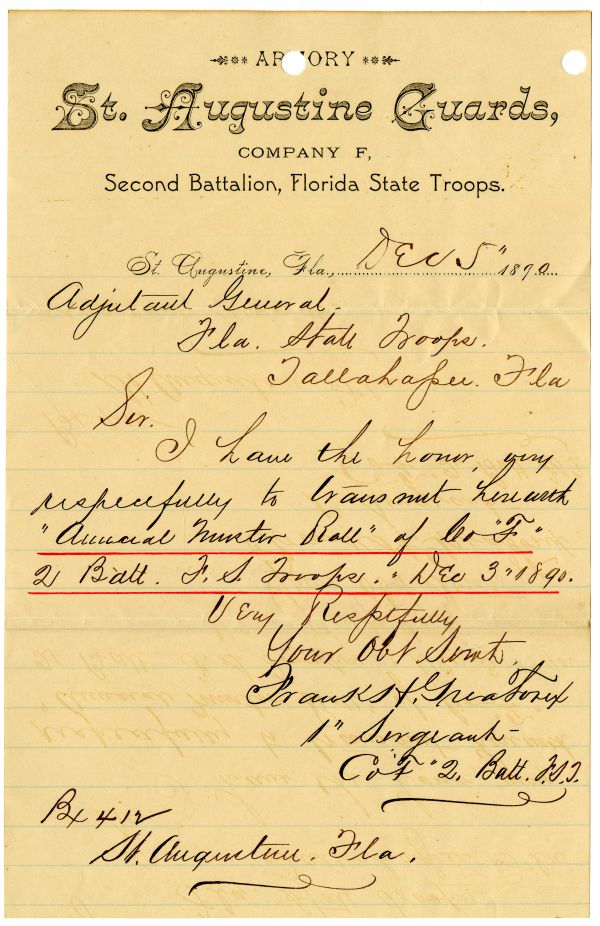 ARMORY
St. Augustine Guards,
COMPANY F,
Second Battalion, Florida State Troops.
St. Augustine, Fla., Dec 5" 1890
Adjutant General.
Fla. State Troops.
Tallahassee. Fla
Sir.
I have the honor, very
respecefully to transmit herewith
"Annual Muster Roll" of Co "F"
2 Batt. F. S. Troops. " Dec 3" 1890.
Very Respetfully
Your Obt Servt.
Frank H. Greatorex
1" Sergeant
Co "F" 2. Batt. F.S.T.
Bx 412
St. Augustine. Fla.